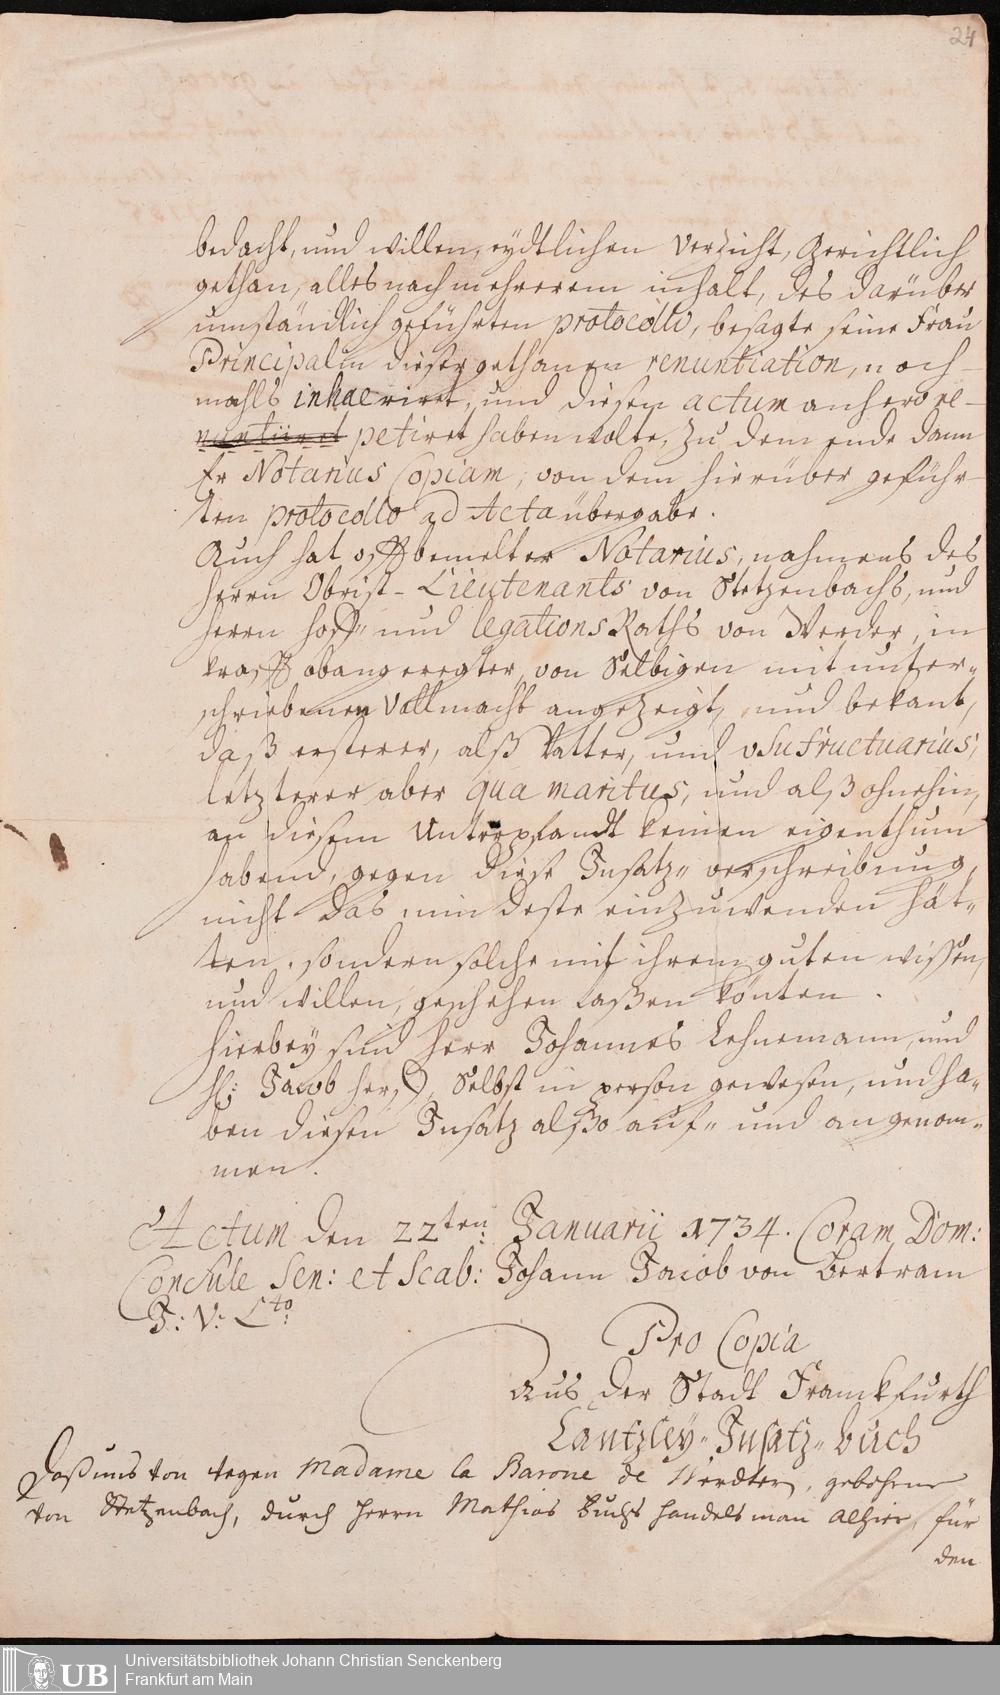 24
bedacht, und willen, eydtlichen Verzicht, gerichtlich
gethan, alles nach mehrerem inhalt, des darüber
umständlich geführten protocollo, besagte seine Frau
Principalin dieser gethanen renuntiation, noch-
mahls inhaeriret, und diesen actum anhero re-
petiret haben wolte, zu dem ende dann
Er Notarius Copiam, von dem hierüber geführ-
ten protocollo ad Acta übergabe.
Auch hat offbemelter Notarius, nahmens des
Herrn Obrist-Lieutenants von Stetzenbachs, und
Herrn Hoff- und legations Raths von Werder, in
krafft obangeregter, von Selbigen mit unter-
schriebenen Vollmacht angezeigt, und bekant,
daß ersterer, alß Vatter, und Vsufructuarius,
letzterer aber qua maritus, und alß ohnehin,
an diesem Unterpfandt keinen eigenthum
habend, gegen diese Insatz- verschreibung,
nicht das mindeste einzuwenden hät-
ten, sondern solche mit ihrem guten wissen,
und willen, geschehen laßen könten.
Hierbey sind Herr Johannes Lehnemann, und
H: Jacob Selbst in person gewesen, und ha-
ben diesen Insatz alßo auf- und angenom-
men.
Actum den 22ten: Januarii 1734. Coram Dom:
Consule Sen: et Scab: Johann Jacob von Bertram
J: V: Lto:
Pro Copia
Aus der Stadt Franckfurth
Cantzley- Insatz- buch
Daß uns von wegen Madame la Barone de Werdter, gebohrne
von Stetzenbach, durch Herrn Mathias Buchs handelsman alhier, für
den
UB
Universitätsbibliothek Johann Christian Senckenberg
Frankfurt am Main